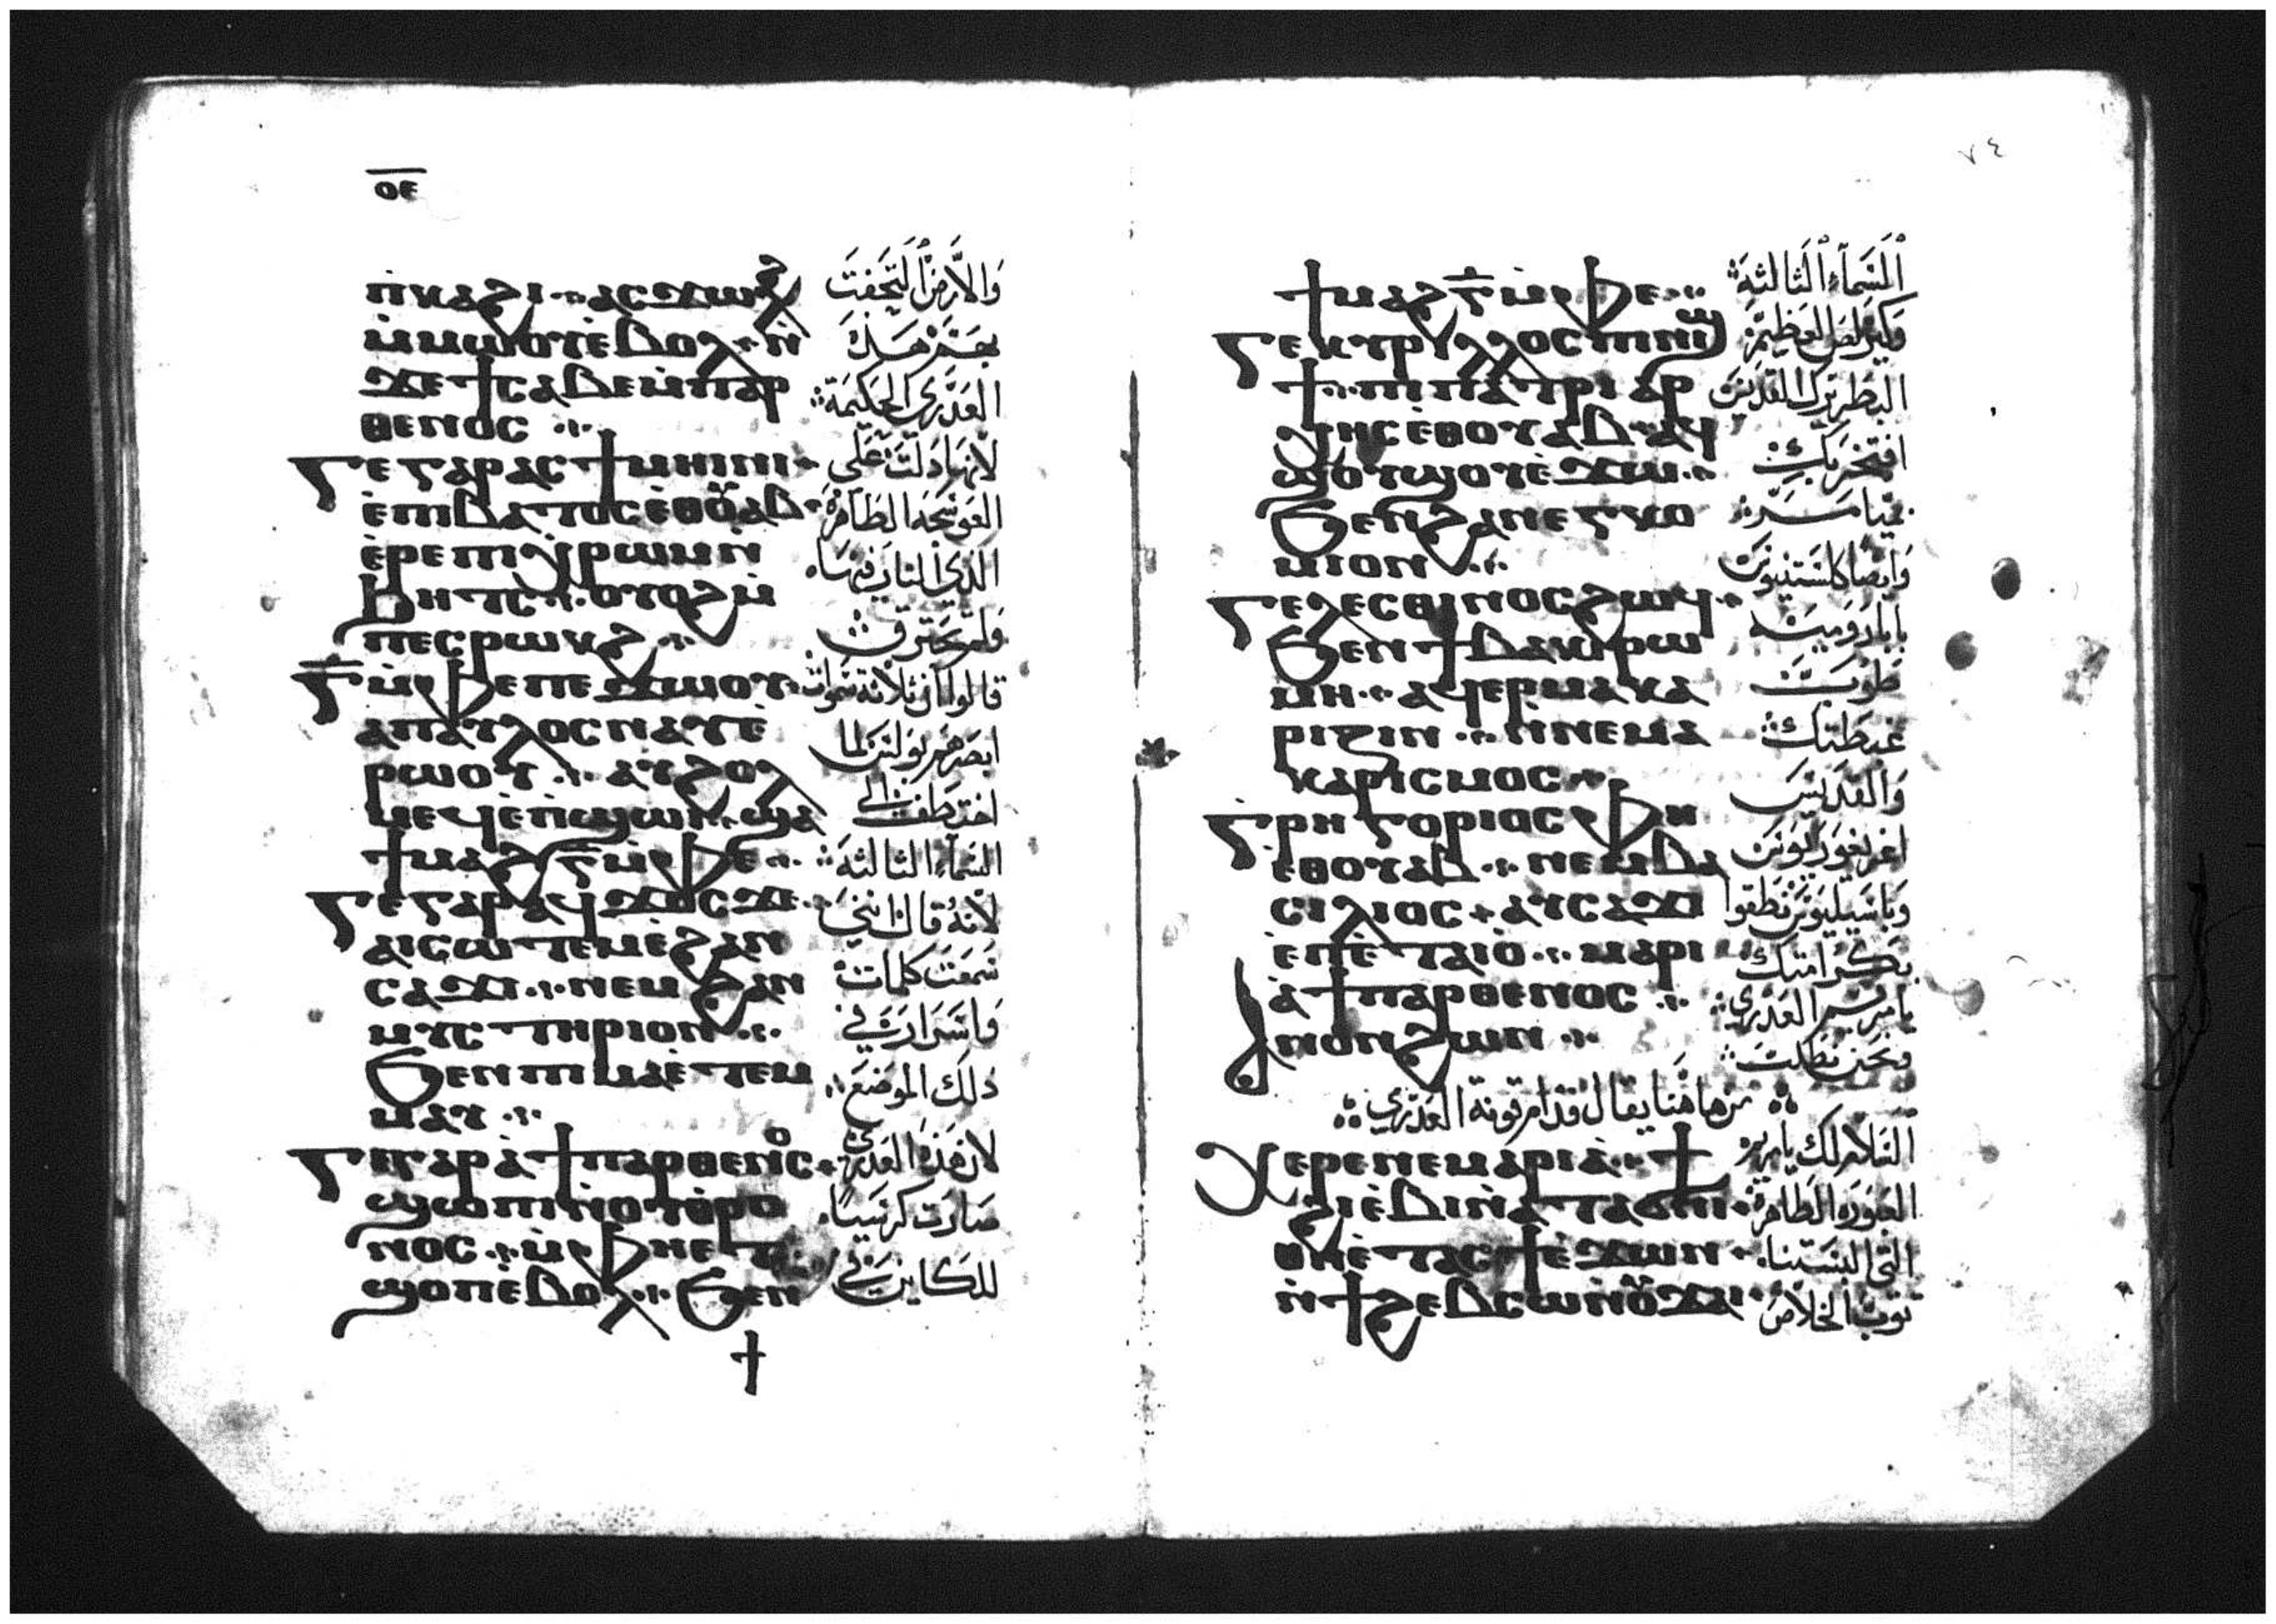 ⲟⲉ
ⲡ̀ⲕⲁϩⲓ ⲁⲥϫⲱϧ
ⲙ̀ⲙⲱⲟⲩ ⲉ̀ⲃⲟⲗ ⲛ̀
ϫⲉ ϯⲥⲁⲃⲉ ⲙ̀ⲡⲁⲣ
ⲑⲉⲛⲟⲥ
ⲅⲉ ⲅⲁⲣ ⲁⲥϯⲙⲏⲓⲛⲓ
ⲉ̀ⲡⲓⲃⲁⲧⲟⲥ ⲉ̀ⲑⲟ̅ⲩ̅ⲁⲃ
ⲉ̀ⲣⲉ ⲡⲓⲭ̀ⲣⲱⲙ ⲛ̀
ϧⲏⲧⲥ ⲟⲩⲟϩ ⲙ̀
ⲡⲉⲥⲣⲱⲕϩ
ⲅ̅ ⲙ̀ⲫⲉ ⲡⲉϫⲱⲟⲩ
ⲁ ⲡⲁⲩⲗⲟⲥ ⲛⲁⲩ ⲉ̀
ⲣⲱⲟⲩ ⲁⲩϩⲟⲗ
ⲙⲉϥ ⲉ̀ⲡ̀ϣⲱⲓ ϣⲁ
ϯⲙⲁϩ ⲅ̅ ⲙ̀ⲫⲉ
ⲅⲉ ⲅⲁⲣ ⲁϥϫⲟⲥ ϫⲉ
ⲁⲓⲥⲱⲧⲉⲙ ⲉ̀ϩⲁⲛ
ⲥⲁϫⲓ ⲛⲉⲙ ϩⲁⲛ
ⲙⲩⲥⲧⲏⲣⲓⲟⲛ
ϧⲉⲛ ⲡⲓⲙⲁ ⲉ̀ⲧⲉⲙ
ⲙⲁⲩ
ⲅⲉ ⲅⲁⲣ ⲁ̀ ϯⲡⲁⲣⲑⲉⲛⲟⲥ
ϣⲱⲡⲓ ⲛ̀ⲟⲩⲑ̀ⲣⲟ
ⲛⲟⲥ ⲙ̀ⲫⲏⲉⲧ
ϣⲟⲡ ⲉ̀ⲃⲟⲗ ϧⲉⲛ
والارض التحفت
بهم هذه
العذرى الحكيمة
لانها دلت على
العوسجه الطاهره
الذى النار فيها
ولم تحترق
قالوا ان ثلاثة سموات
ابصرهم بولس لما
اختطف الى
السماء الثالثة
لانه قال اننى
سمعت كلمات
واسرار فى
ذلك الموضع
لان هذه العذرى
صارت كرسيا
للكاين فى
٧٤
ϯⲙⲁϩ ⲅ̅ ⲙ̀ⲫⲉ
ⲅⲉ ⲕⲩⲣⲓⲗⲗⲟⲥ ⲡⲓⲛⲓϣ
ϯ ⲡⲓⲡⲁⲧⲣⲓⲁⲣ
ⲭⲏⲥ ⲉⲑⲟⲩⲁⲃ ⲁϥ
ϣⲟⲩϣⲟⲩ ⲉ̀ϫⲱ
ϧⲉⲛ ϩⲁⲛⲉⲅⲕⲟ
ⲙⲓⲟⲛ
ⲅⲉⲗⲉⲥⲑⲓⲛⲟⲥ ϩⲱϥ
ϧⲉⲛ ϯⲃⲁⲕⲓ ⲣⲱ
ⲙⲏ ⲁϥⲉⲣⲙⲁⲕⲁ
ⲣⲓⲍⲓⲛ ⲛ̀ⲛⲉⲙⲁ
ⲕⲁⲣⲓⲥⲙⲟⲥ
ⲅ̀ⲣⲏⲅⲟⲣⲓⲟⲥ ⲫⲏ
ⲉⲑⲟⲩⲁⲃ ⲛⲉⲙ ⲃⲁ
ⲥⲓⲗⲓⲟⲥ ⲁⲩⲥⲁϫⲓ
ⲉ̀ⲡⲉ̀ⲧⲁⲓⲟ̀ ⲙⲁⲣⲓ
ⲁ̀ ϯⲡⲁⲣⲑⲉⲛⲟⲥ
ⲁⲛⲟⲛ ϩⲱⲛ
من هاهنا يقال قدام قونة العذرى
ⲭⲉⲣⲉ ⲛⲉ ⲙⲁⲣⲓⲁ̀ ϯ
ϭⲣⲟⲙⲡⲓ
ⲑⲏⲉ̀ⲧⲁⲥϯ ⲉ̀ϫⲱⲛ
ⲛ̀ϯϩⲉⲃⲥⲱ ⲛ̀ⲟⲩϫⲁⲓ
السماء الثالثة
وكيرلص العظيم
البطريرك القديس
افتخر بك
وايضا كلستينوس
بابا رومية
طوب
غبطتك
والقديس
اغريغوريوس
وباسيليوس نطقوا
بكرامتك
يا مريم العذرى
ونحن نطلب
السلام لك يا مريم
الطاهرة
التى البستنا
ثوب الخلاص